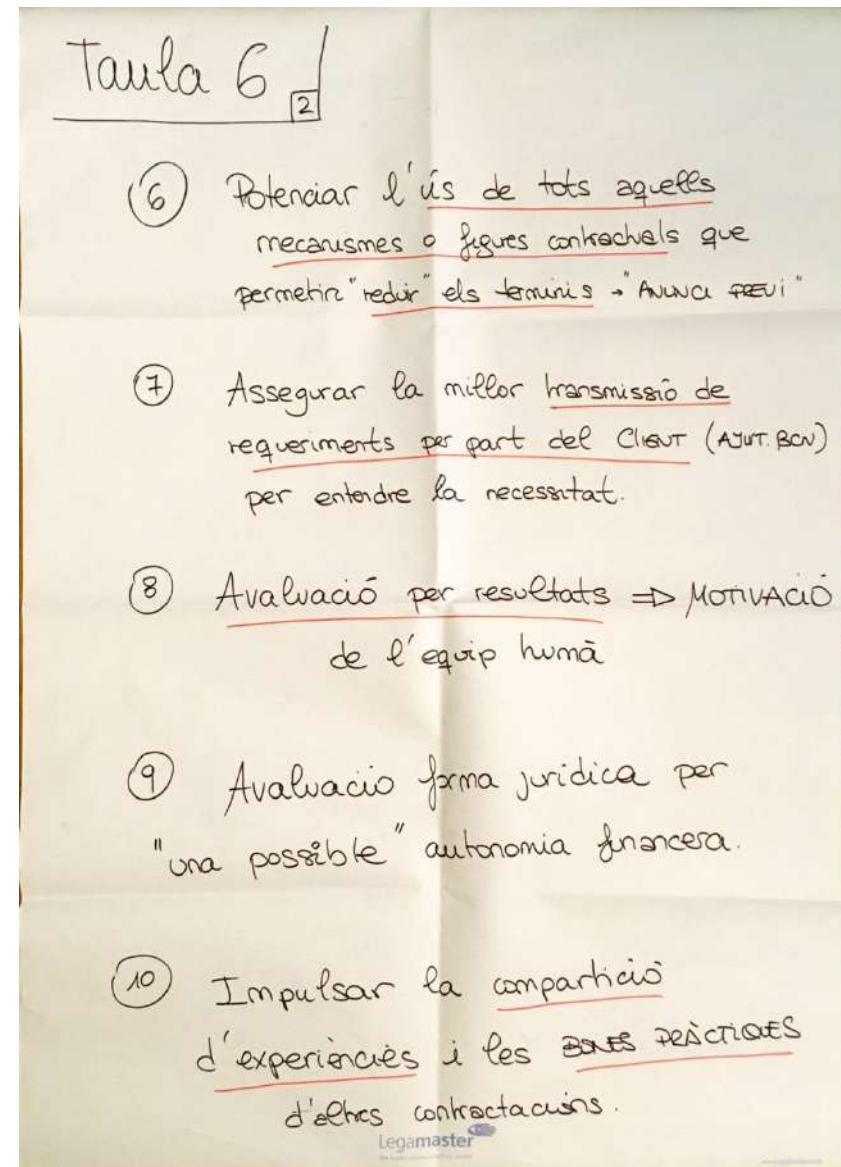 Taula 6
2
6 Potenciar l'ús de tots aquells
mecanismes o figures contractuals que
permetin "reduir" els terminis → "ANUNCI PREVI"
7 Assegurar la millor transmissió de
requeriments per part del CLIENT (AJUT. BCN)
per entendre la necessitat.
8 Avaluació per resultats ⇒ MOTIVACIÓ
de l'equip humà
9 Avaluacio forma jurídica per
"una possible" autonomia financera.
10 Impulsar la compartició
d'experiències i les BONES PRÀCTIQUES
d'altres contractacions.
Legamaster